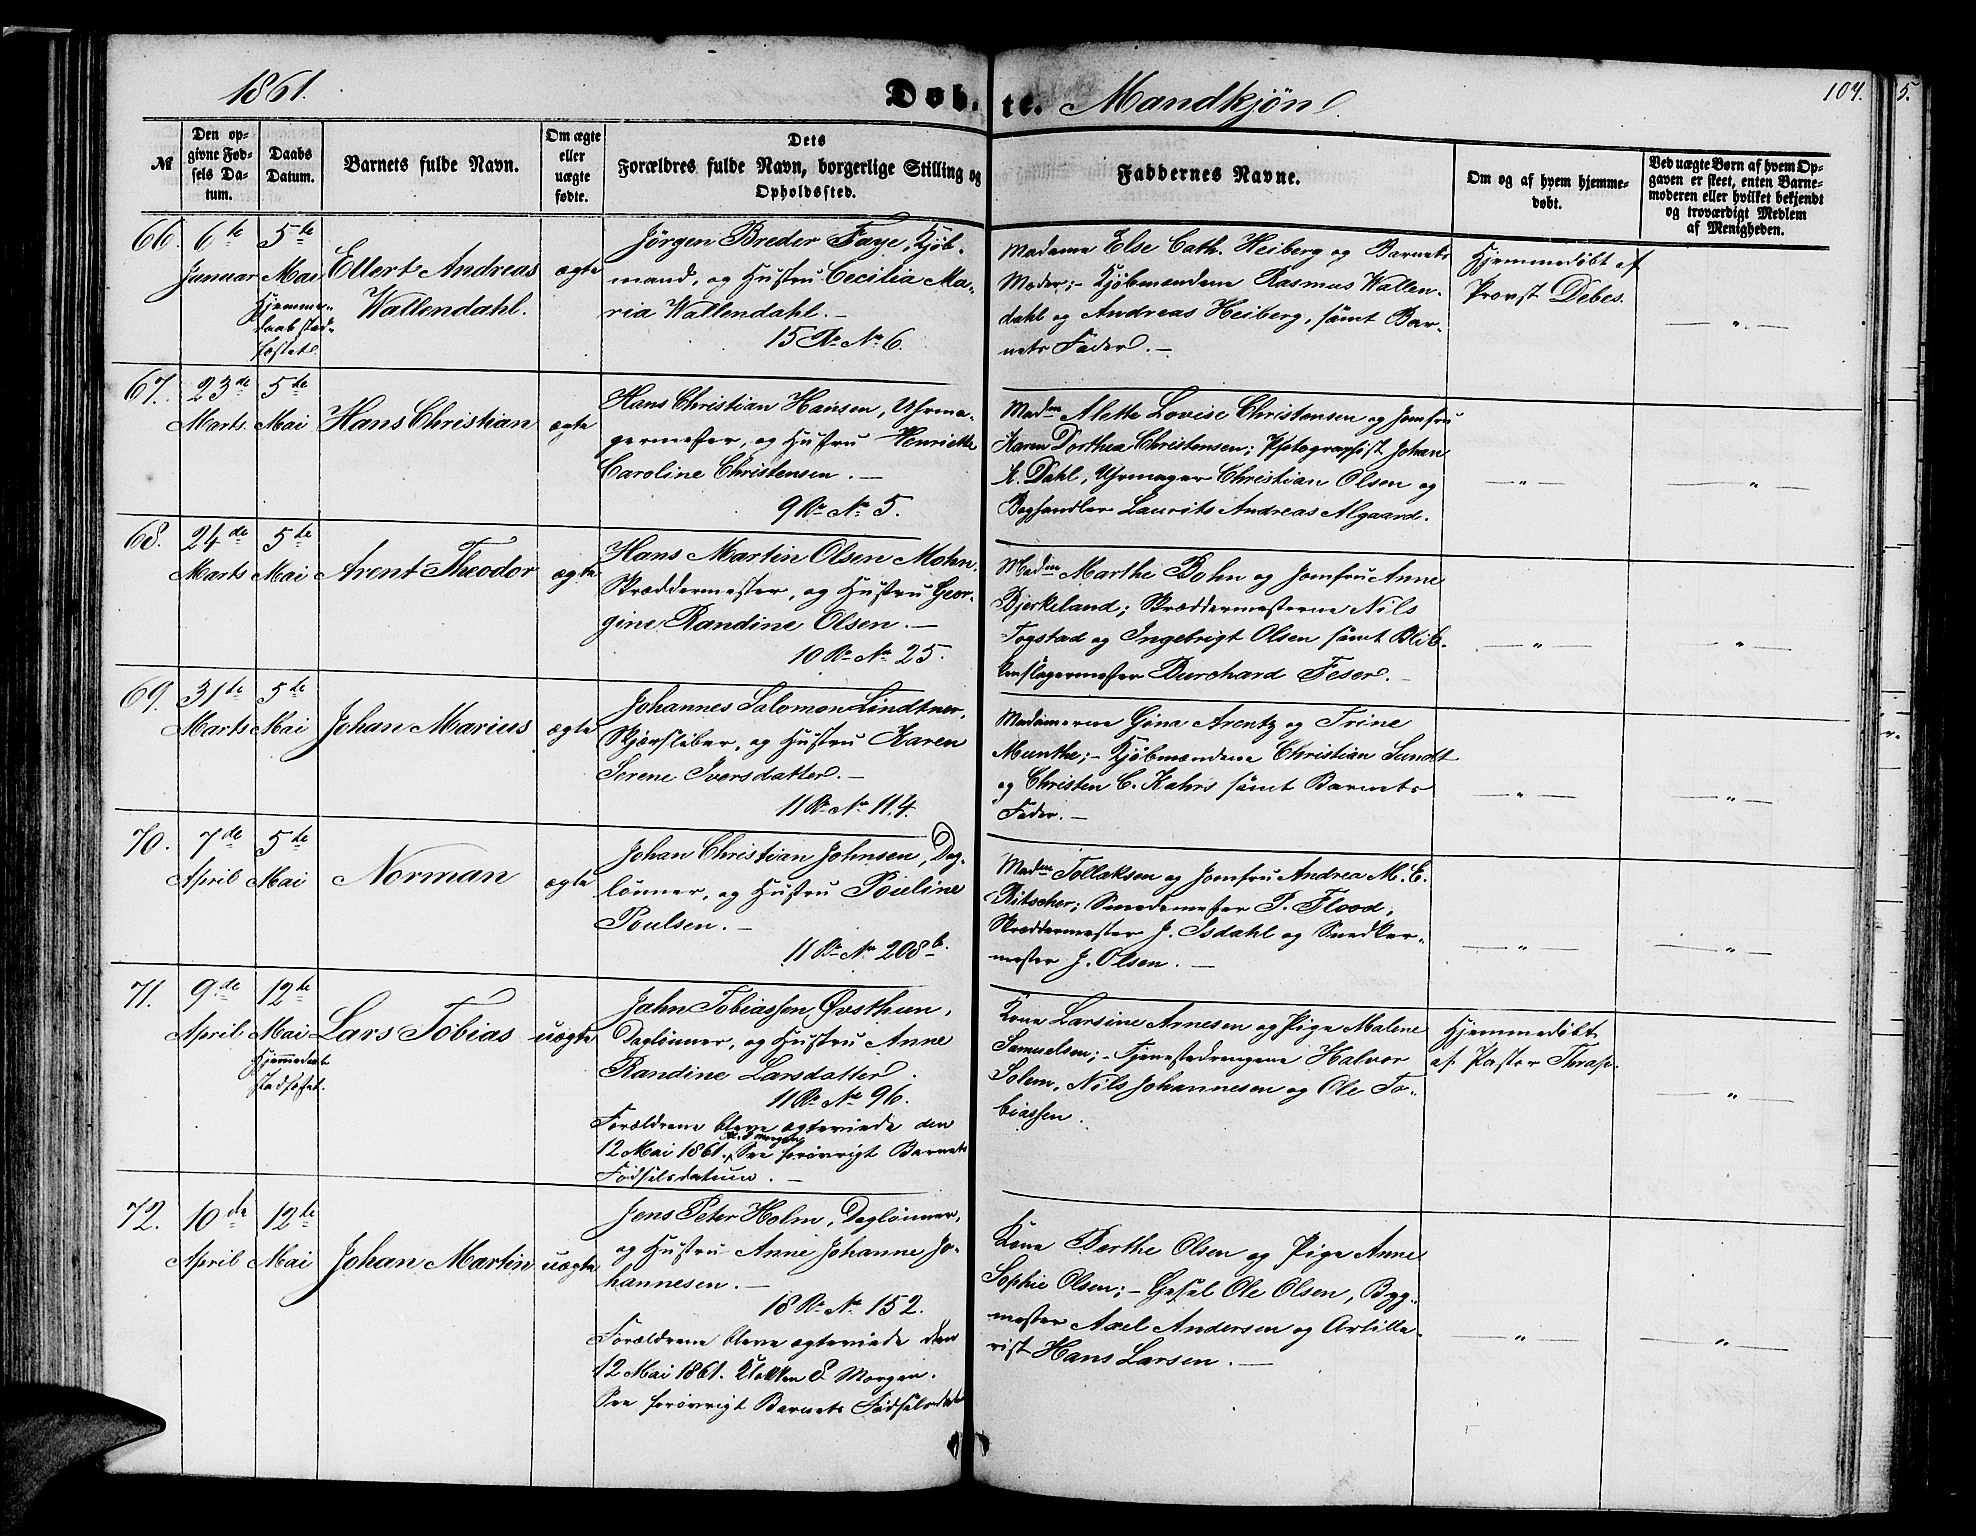 1861.
Döb-
te. Mandkjön.
104.
5.
№
Den op-
givne Fød-
sels Da-
tum.
Daabs
Datum.
Barnets fulde Navn.
Om ægte
eller
uægte
fødte.
Dets
Forældres fulde Navn, borgerlige Stilling og
Opholdssted.
Faddernes Navne.
Om og af hvem hjemme-
døbt.
Ved uægte Børn af hvem Op-
gaven er skeet, enten Barne-
moderen eller hvilket bekjendt
og troværdigt Medlem
af Menigheden.
66.
6te
Januar
5te
Mai
Hjemme-
daab stad-
fæstet.
Ellert Andreas
Wallendahl.
ægte
Jörgen Breder Faye, Kjöb-
mand, og Hustru Cecilia Ma-
ria Wallendahl. —
15 R. No 6.
Madame Else Cath. Heiberg og Barnets
Moder; - Kjöbmændene Rasmus Wallen-
dahl og Andreas Heiberg, samt Bar-
nets Fader. —
Hjemmedöbt af
Provst Debes.
— " —
67.
23de
Marts.
5te
Mai
Hans Christian
ægte
Hans Christian Hansen, Uhrma-
germester, og Hustru Henriette
Caroline Christensen. —
9 R. No 5.
Madm Alette Lovise Christensen og Jomfru
Karen Dorthea Christensen; Photographist Johan
K. Dahl, Uhrmager Christian Olsen og
Boghandler Laurits Andreas Algaard.
— " —
— " —
68.
24de
Marts
5te
Mai
Arent Theodor
ægte
Hans Martin Olsen Mohn,
Skræddermester, og Hustru Geor-
gine Randine Olsen. —
10 R. No 25.
Madm Marthe Bohn og Jomfru Anne
Bjerkeland; Skræddermesterne Nils
Fogstad og Ingebrigt Olsen samt Blik-
kenslagermester Burchard Feser. —
— " —
— " —
69.
31te
Marts
5te
Mai
Johan Marius
ægte
Johannes Salomon Lindtner,
Skjærsliber, og Hustru Karen
Serene Iversdatter. —
11 R. No 114.
Madamerne Gina Arentz og Trine
Munthe; - Kjöbmændene Christian Sundt
og Christen C. Kahrs samt Barnets
Fader. —
— " —
— " —
70.
7de
April
5te
Mai
Norman
ægte
Johan Christian Johnsen, Dag-
lönner, og Hustru Pouline
Poulsen. —
11 R. No 208b.
Madm Tollaksen og Jomfru Andrea M. E.
Ritscher; Smedemester P. Flood,
Skræddermester J. Isdahl og Snedker-
mester J. Olsen. —
— " —
— " —
71.
9de
April
12te
Mai
Hjemmedaab
stadfæstet.
Lars Tobias
uægte
John Tobiassen Øvsthun,
Daglönner, og Hustru Anne
Randine Larsdatter.
11 R. No 96.
Forældrene bleve ægteviede den
12 Mai 1861. Kl. 8 Morgen. See forövrigt Barnets
Födselsdatum. —
Kone Larsine Arnesen og Pige Malene
Samuelsen; - Tjenestedrengene Halvor
Solem, Nils Johannesen og Ole To-
biassen.
Hjemmedöbt
af Pastor Thrap.
— " —
72.
10de
April
12te
Mai
Johan Martin
uægte
Jens Peter Holm, Daglönner,
og Hustru Anne Johanne Jo-
hannesen. —
18 R. No 152.
Forældrene bleve ægteviede den
12 Mai 1861. Klokken 8 Morgen.
See forövrigt Barnets Födselsdato
Kone Berthe Olsen og Pige Anne
Sophie Olsen; - Gesel Ole Olsen, Byg-
mester Axel Andersen og Artille-
rist Hans Larsen. —
— " —
— " —